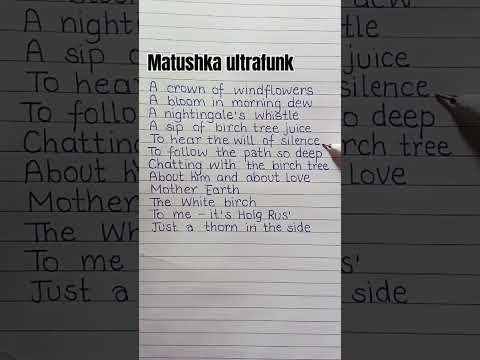 Matushka ultrafunk
A crown of windflowers
A bloom in morning dew
A nightingale's whistle
A sip of birch tree juice
To hear the will of silence
To follow the path so deep
Chatting with the birch tree
About him and about love
Mother Earth
The White birch
To me - it's Holg Rus'
Just a thorn in the side